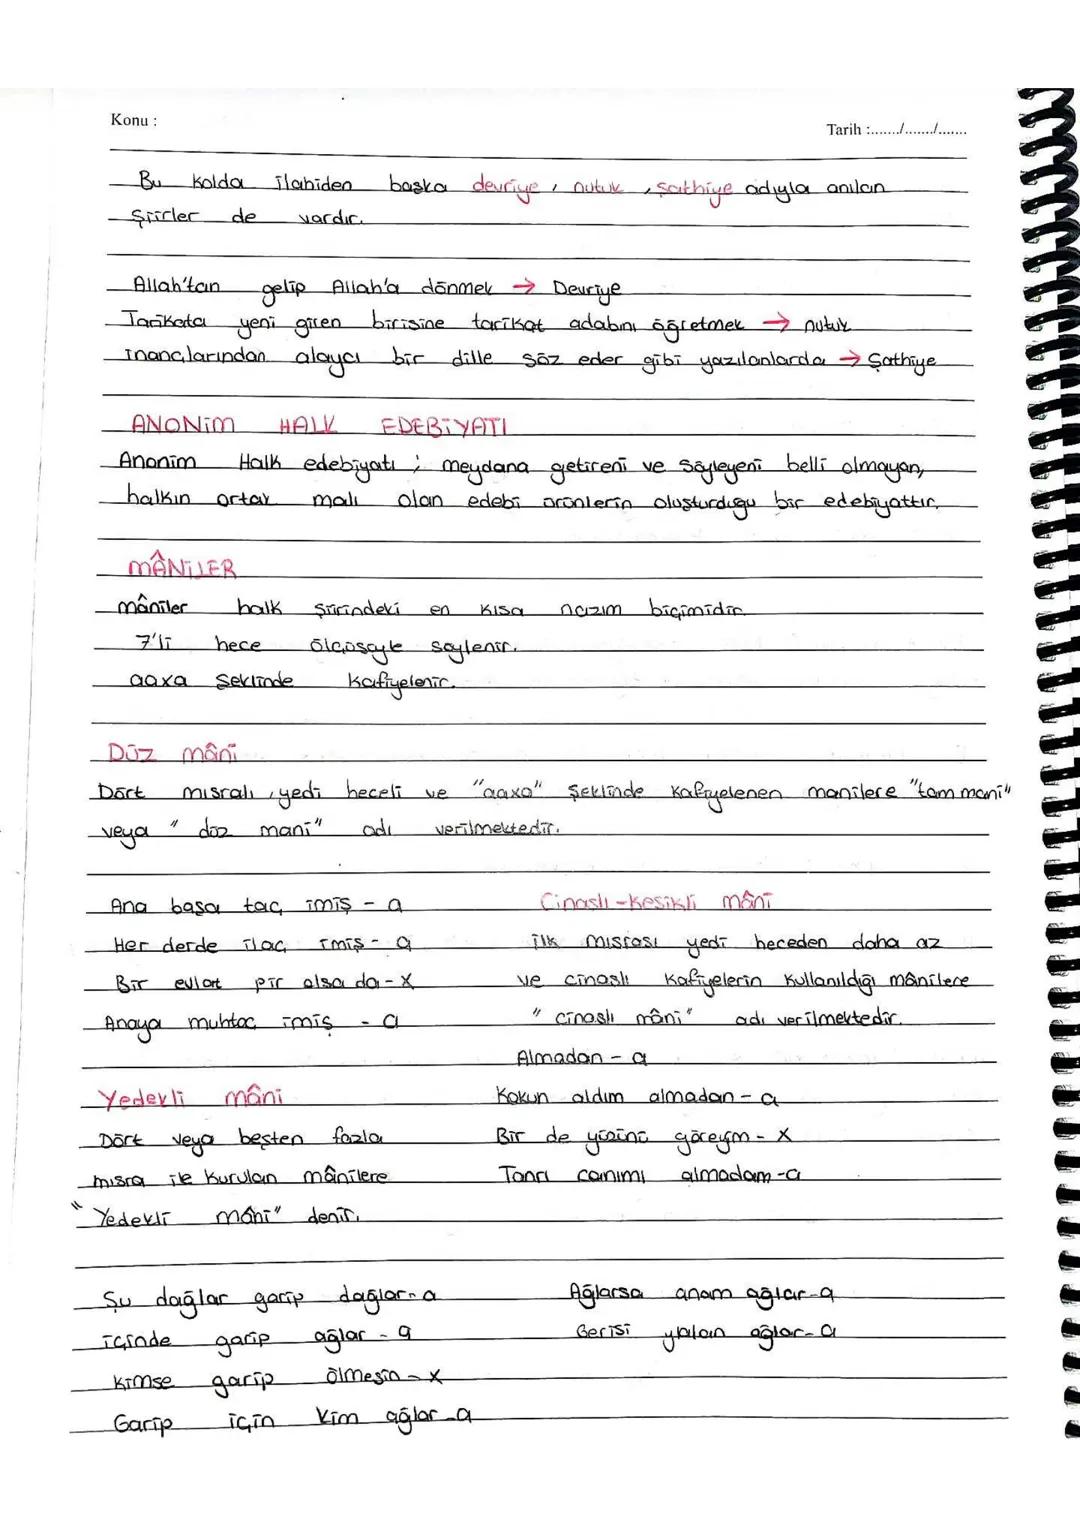 Konu :
Tarih :......./......./.......
Bu kolda ilahiden başka devriye, nutuk, şathiye adıyla anılan
şiirler de vardır.
Allah'tan gelip Allah'a dönmek → Devriye
Tarikata yeni giren birisine tarikat adabını öğretmek → nutuk
inançlarından alaycı bir dille söz eder gibi yazılanlarda → Şathiye
ANONİM HALK EDEBİYATI
Anonim Halk edebiyatı ; meydana getireni ve söyleyeni belli olmayan,
halkın ortak malı olan edebi ürünlerin oluşturduğu bir edebiyattır.
MÂNİLER
mâniler halk şiirindeki en kısa nazım biçimidir.
7'li hece ölçüsüyle söylenir.
aaxa şeklinde kafiyelenir.
Düz mâni
Dört mısralı, yedi heceli ve "aaxa" şeklinde kafiyelenen manilere "tam mani"
veya "düz mani" adı verilmektedir.
Ana başa taç imiş - a
Her derde ilaç imiş - a
Bir evlat pir olsa da - x
Anaya muhtaç imiş - a
Cinaslı - Kesikli mâni
ilk mısrası yedi heceden daha az
ve cinaslı kafiyelerin kullanıldığı mânilere
"cinaslı mâni" adı verilmektedir.
Almadan - a
Kokun aldım almadan - a
Bir de yüzünü göreyim - x
Tanrı canımı almadam - a
Yedekli mâni
Dört veya beşten fazla
mısra ile kurulan mânilere
"Yedekli mâni" denir.
Şu dağlar garip dağlar - a
içinde garip ağlar - a
Kimse garip ölmesin - x
Garip için kim ağlar - a
Ağlarsa anam ağlar - a
Gerisi yalan ağlar - a